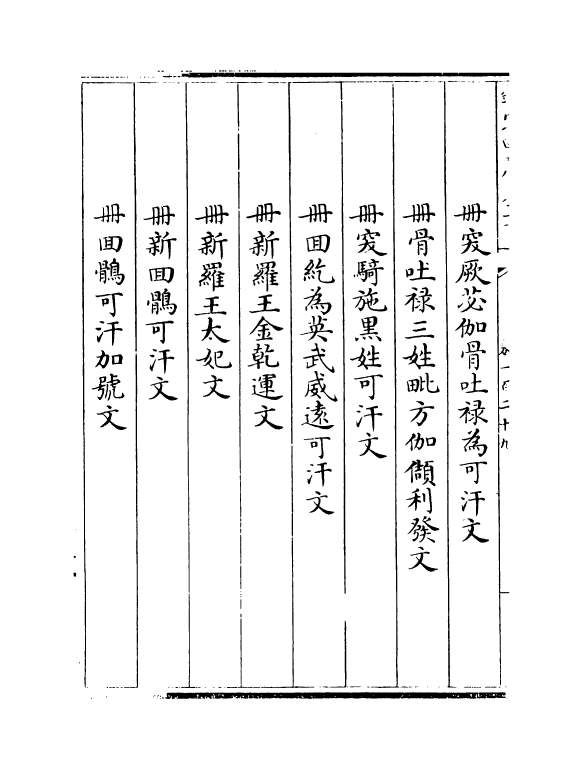 冊突厥苾伽骨吐禄為可汗文
冊骨吐禄三姓毗方伽頡利發文
冊突騎施黒姓可汗文
冊回紇為英武威遠可汗文
冊新羅王金乾運文
冊新羅王太妃文
冊新回鶻可汗文
冊回鶻可汗加號文